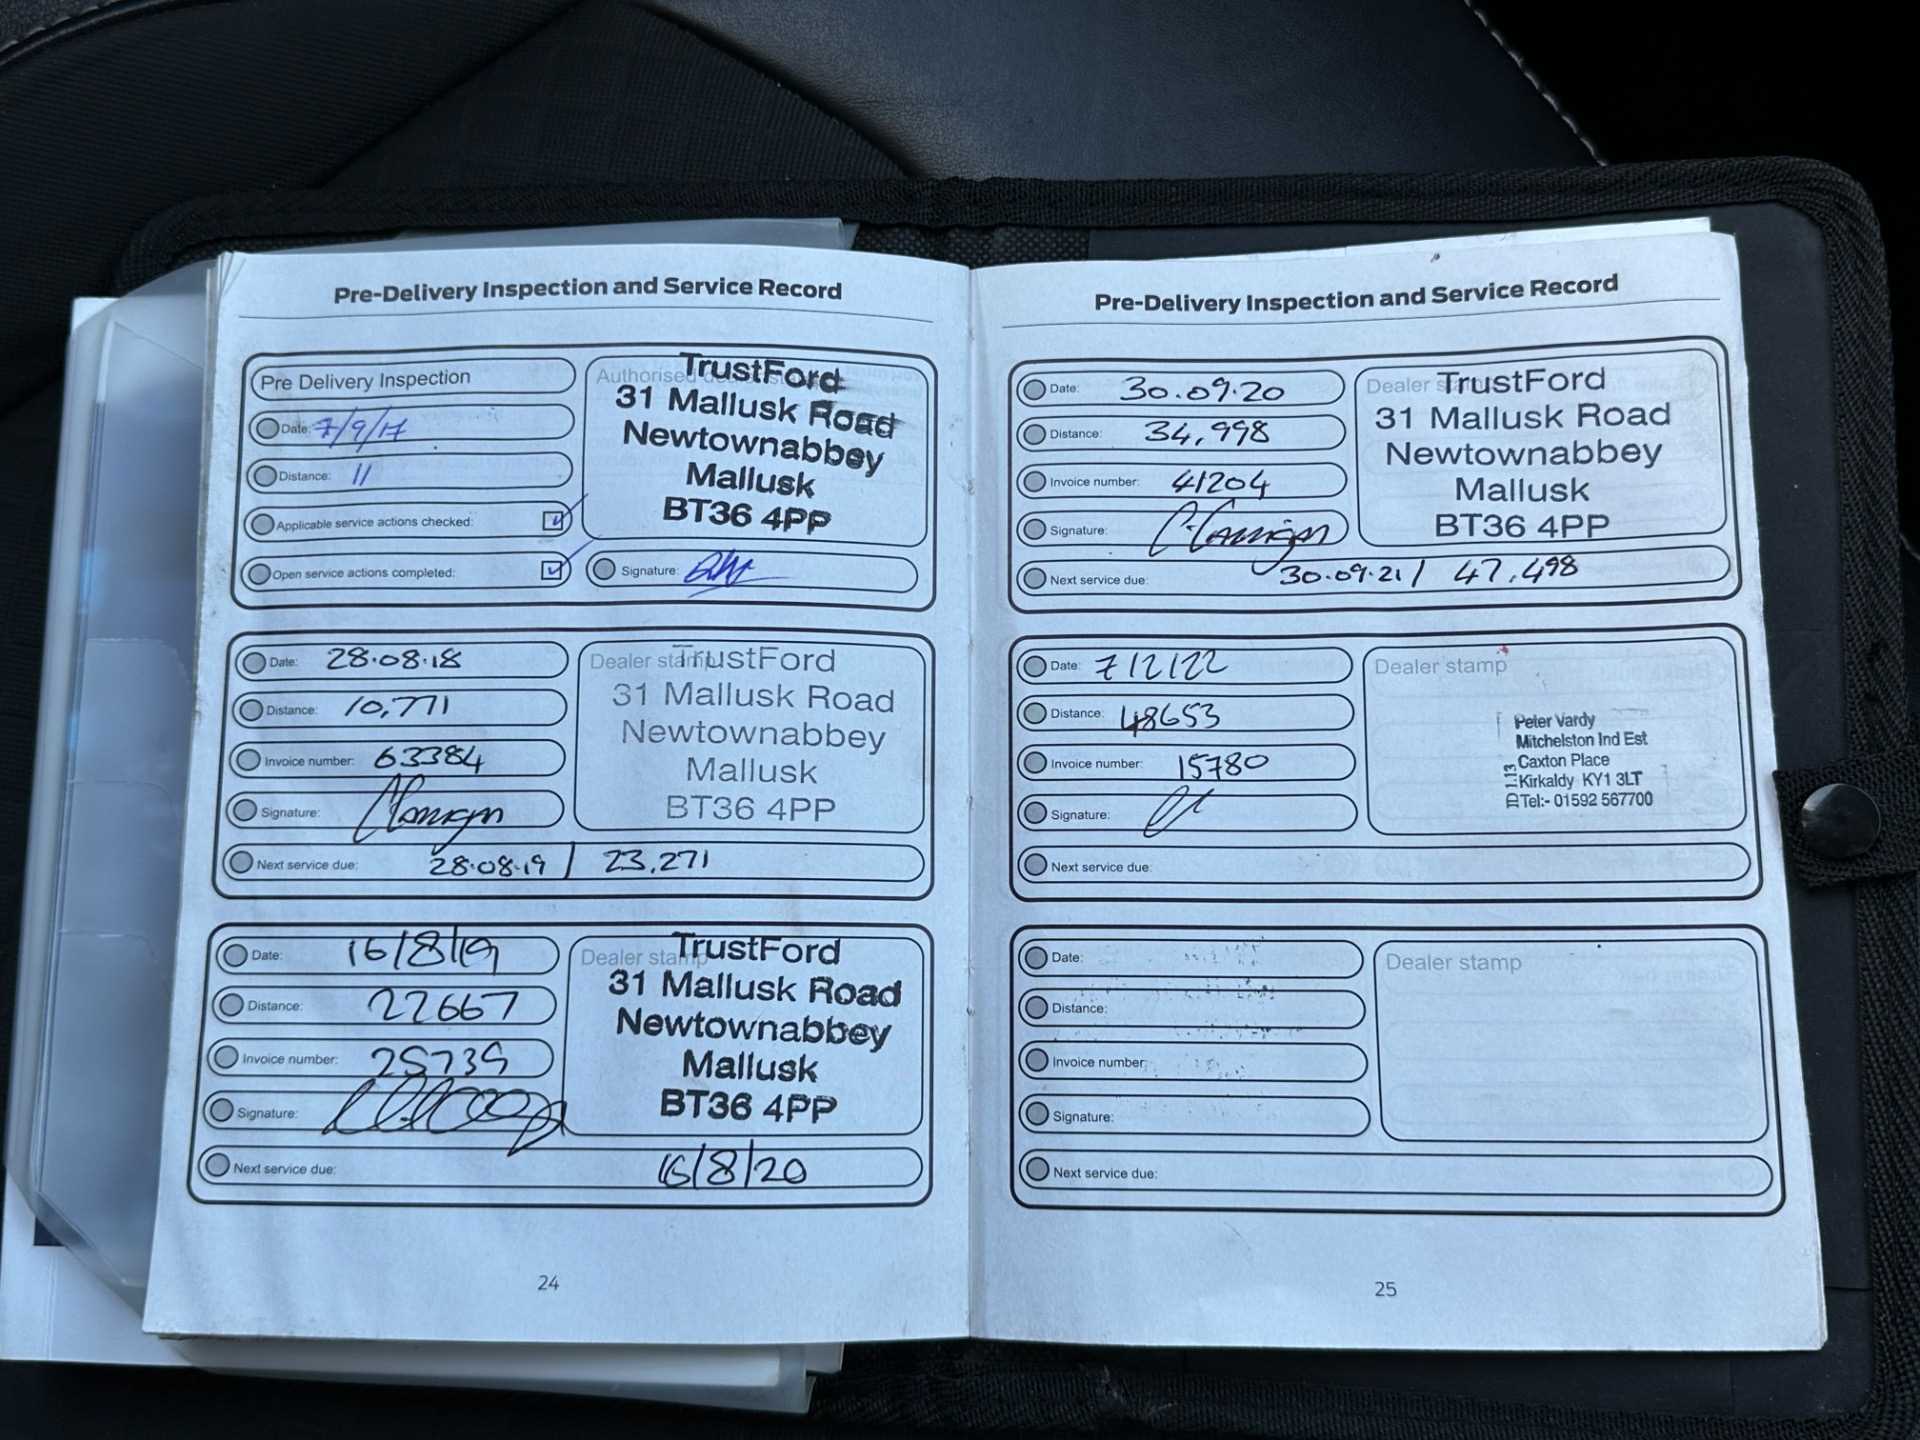 Pre-Delivery Inspection and Service Record
Pre Delivery Inspection
Date: 7/9/17
Distance: 11
Applicable service actions checked:
Open service actions completed:
Authorised
TrustFord
31 Mallusk Road
Newtownabbey
Mallusk
BT36 4PP
Signature:
Date: 28.08.18
Distance: 10,771
Invoice number: 63384
Signature:
Next service due: 28.08.19 / 23,271
Dealer stamp
TrustFord
31 Mallusk Road
Newtownabbey
Mallusk
BT36 4PP
Date: 16/8/19
Distance: 22667
Invoice number: 25739
Signature:
Next service due: 16/8/20
Dealer stamp
TrustFord
31 Mallusk Road
Newtownabbey
Mallusk
BT36 4PP
24
Pre-Delivery Inspection and Service Record
Date: 30.09.20
Distance: 34,998
Invoice number: 41204
Signature:
Next service due: 30.09.21 / 47,498
Dealer
TrustFord
31 Mallusk Road
Newtownabbey
Mallusk
BT36 4PP
Date: 7/2/22
Distance: 48653
Invoice number: 15780
Signature:
Next service due:
Dealer stamp
Peter Vardy
Mitchelston Ind Est
Caxton Place
Kirkaldy KY1 3LT
Tel:- 01592 567700
Date:
Distance:
Invoice number:
Signature:
Next service due:
Dealer stamp
25